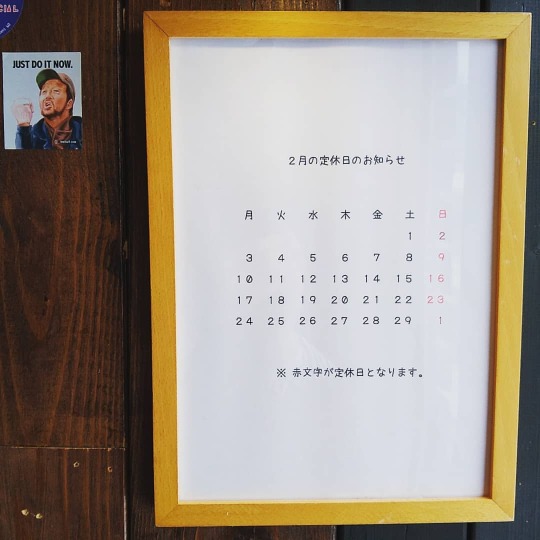 JUST DO IT NOW.
2月の定休日のお知らせ
月 火 水 木 金 土 日
1 2
3 4 5 6 7 8 9
10 11 12 13 14 15 16
17 18 19 20 21 22 23
24 25 26 27 28 29 1
※ 赤文字が定休日となります。